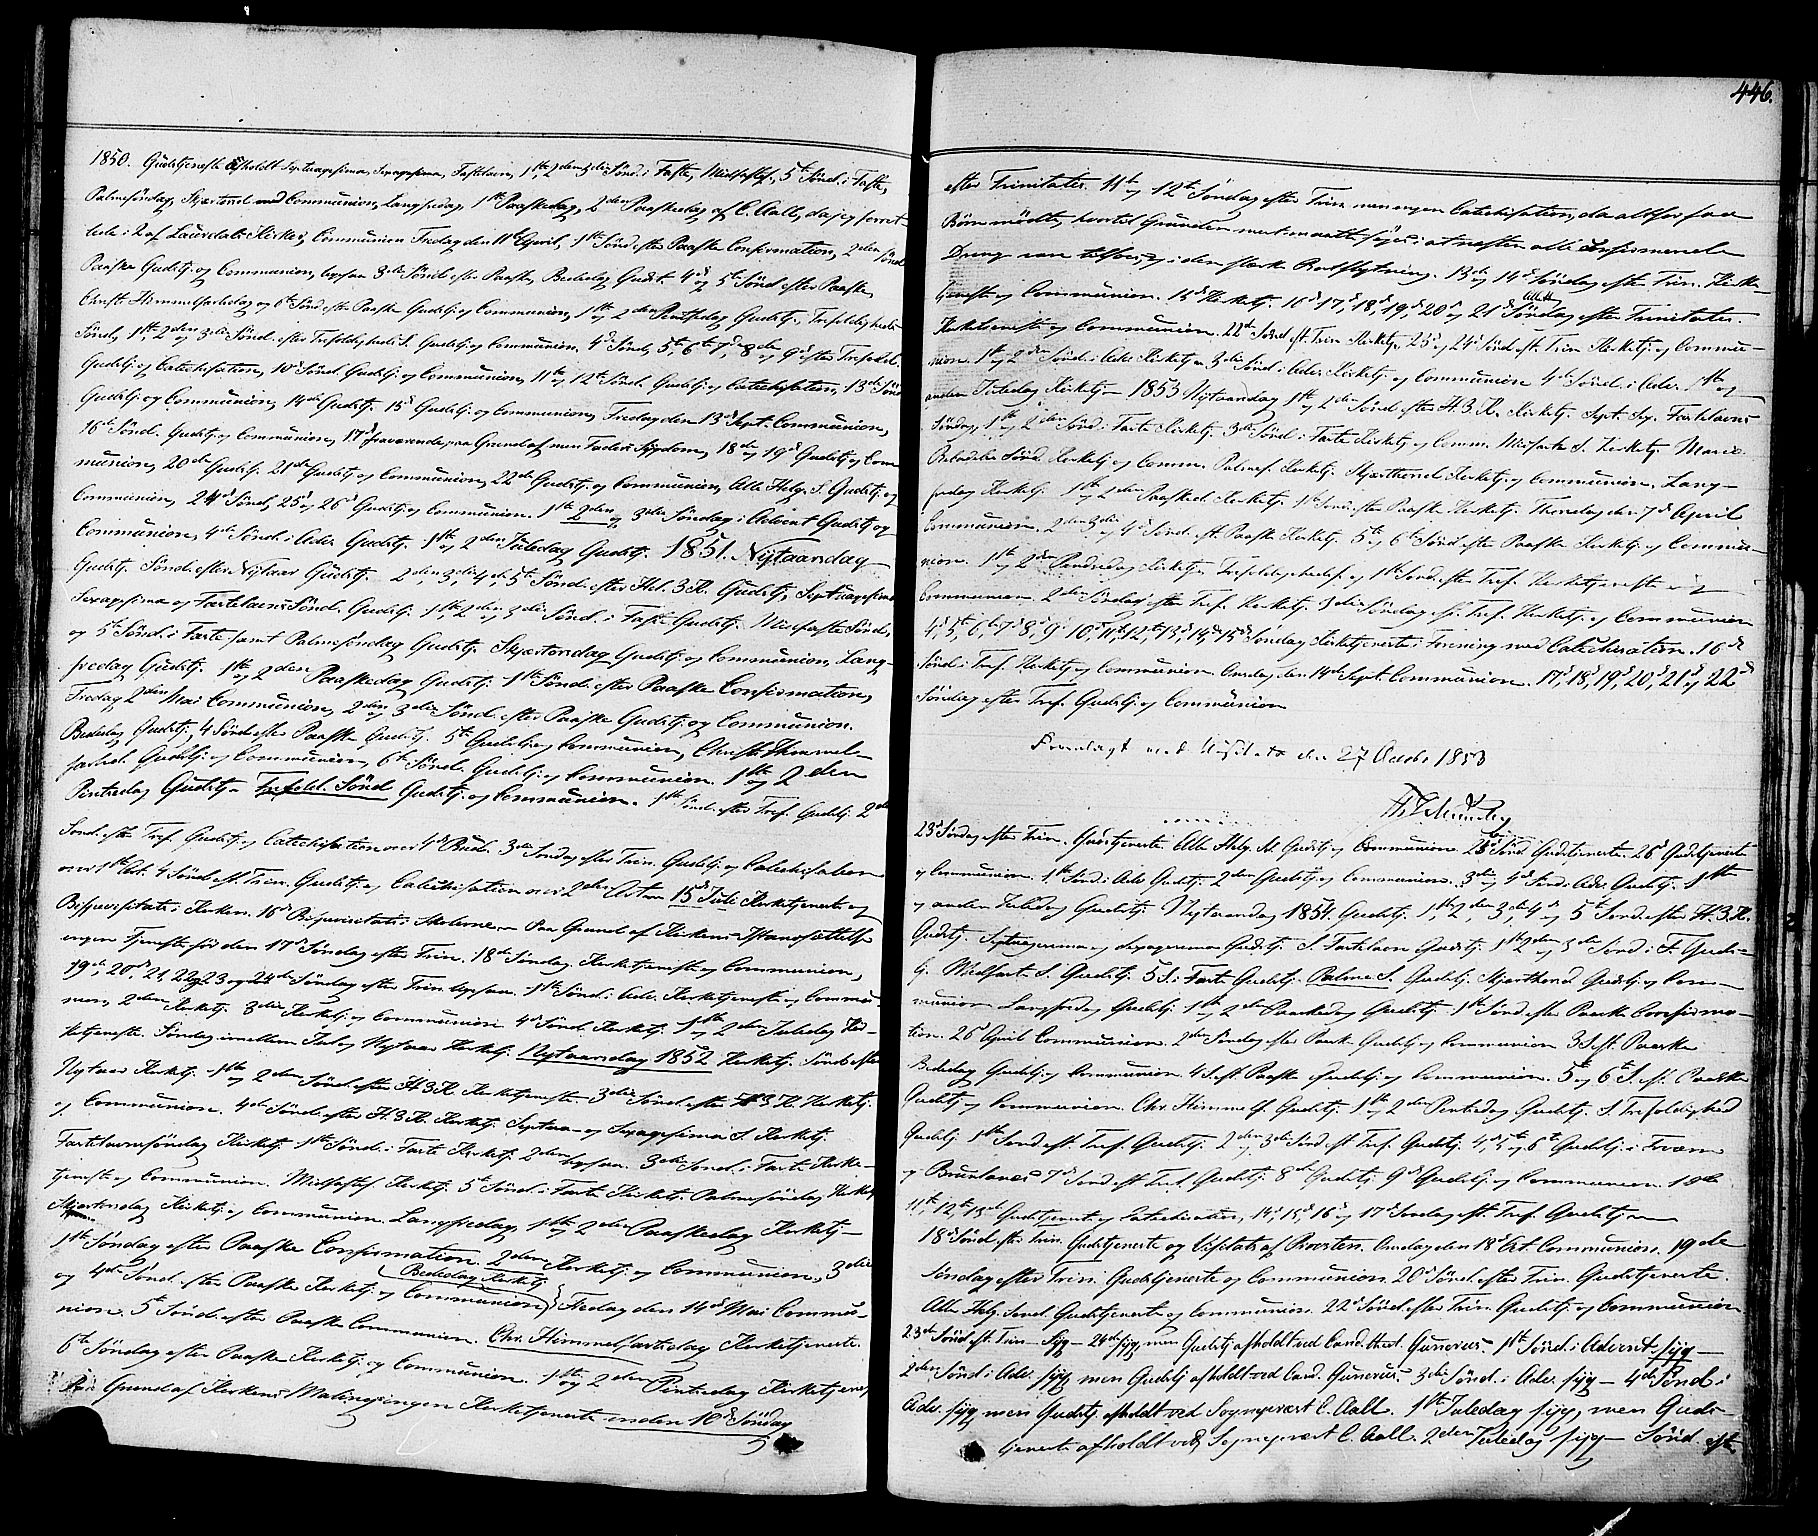 446.
1850. Gudstjeneste afholdt Septuagesima, Sexagesima, Fastelavn, 1ste, 2den, 3die Sønd. i Faste, Midfastes., 5te Sønd. i Faste,
Palmesøndag, Skjærtorsd. med Communion, Langfredag, 1ste Paaskedag, 2den Paaskedag af C. Aall, da jeg forret-
tede i Laurdals Kirke, Communion Fredag den 11te April, 1ste Sønd. efter Paaske Confirmation, 2den Sønd.
Paaske Gudstj. og Communion, ligesaa 3die Sønd. efter Paaske, Bededag Gudst. 4de og 5te Sønd. efter Paaske,
Christi Himmelfartsdag og 6te Sønd. efter Paaske Gudstj. og Communion, 1ste og 2den Pintsedag Gudstj., Trefoldigheds
Sønd., 1ste, 2den og 3die Sønd. efter Trefoldigheds S. Gudstj. og Communion. 4de Sønd., 5te, 6te, 7de, 8de og 9de efter Trefoldh.
Gudstj. og Catechisation, 10de Sønd. Gudstj. og Communion, 11te og 12te Sønd. Gudstj. og Catechisation, 13de Sønd.
Gudstj. og Communion, 14de Gudstj. 15de Gudstj. og Communion, Fredag den 13de Sept. Communion,
16de Sønd. Gudstj. og Communion, 17de fraværende paa Grund af min Faders Sygdom, 18de og 19de Gudstj. og Com-
munion, 20de Gudstj. 21de Gudstj. og Communion, 22de Gudstj. og Communion, Alle Helg. S. Gudstj. og
Communion, 24de Sønd., 25de og 26de Gudstj. og Communion. 1ste, 2den og 3die Søndag i Advent Gudstj. og
Communion, 4de Sønd. i Adv. Gudstj. 1ste og 2den Juledag Gudstj. 1851. Nytaarsdag
Gudstj. Sønd. efter Nytaar Gudstj. 2den, 3die, 4de, 5te Sønd. efter Hel. 3 K. Gudstj. Septuagesima
Sexagesima og Fastelavns Sønd. Gudstj. 1ste, 2den og 3die Sønd. i Faste Gudstj. Midfaste Sønd.
og 5te Sønd. i Faste samt Palmesøndag Gudstj. Skjærtorsdag Gudstj. og Communion, Lang-
fredag Gudstj. 1ste og 2den Paaskedag Gudstj. 1ste Sønd. efter Paaske Confirmation,
Fredag 2den Mai Communion, 2den og 3die Sønd. efter Paaske Gudstj. og Communion.
Bededag Gudstj., 4 Sønd. efter Paaske Gudstj. 5te Gudstj. og Communion, Christi Himmel-
fartsd. Gudstj. og Communion, 6te Sønd. Gudstj. og Communion. 1ste og 2den
Pintsedag Gudstj. Trefold. Sønd. Gudstj. og Communion. 1ste Sønd. efter Tref. Gudstj. 2den
Sønd. efter Tref. Gudstj. og Catechisation over 4de Bud. 3die Søndag efter Trin. Gudstj. og Catechisation
over 1ste Art. 4 Sønd. eft. Trin. Gudstj. og Catechisation over 2den Artm. 15de Juli Kirketjeneste og
Bispevisitats i Kirken. 16de Bispevisitats i Skolerne. Paa Grund af Kirkens Istandsættelse
ingen Tjeneste før den 17de Søndag efter Trin. 18de Søndag Kirketjeneste og Communion,
19de, 20de, 21, 22, 23 og 24de Søndag efter Trin. ligesaa. 1ste Sønd. i Adv. Kirketjeneste og Commu-
nion, 2den Kirketj. 3die Kirketj. og Communion 4de Sønd. Kirketj. 1ste og 2den Juledag Kir-
ketjeneste. Søndag imellem Jul og Nytaar Kirketj. Nytaarsdag 1852 Kirketj. Sønd. efter
Nytaar Kirketj. 1ste og 2den Sønd. efter H 3 K Kirketjeneste 3die Sønd. efter H 3 K. Kirketj.
og Communion. 4de Sønd. efter H. 3 K. Kirketj. Septua- og Sexagesima S. Kirketj.
Fastelavnssøndag Kirketj. 1ste Sønd. i Faste Kirketj. 2den ligesaa. 3die Sønd. i Faste Kirke-
tjeneste og Communion. Midfastes. Kirketj. 5te Sønd. i Faste Kirketj. Palmesøndag Kirketj.
Skjærtorsdag Kirketj. og Communion. Langfredag, 1ste og 2den Paaskedag Kirketj.
1ste Søndag efter Paaske Confirmation. 2den Kirketj. og Communion, 3die
Bededag Kirketj.
og 4de Sønd. efter Paaske Kirketj. og Communion, Fredag den 14de Mai Commu-
nion. 5te Sønd. efter Paaske Communion. Chr. Himmelfartsdag Kirketjeneste.
6te Søndag efter Paaske Kirketj. og Communion. 1ste og 2den Pintsedag Kirketjenes.
Paa Grund af Kirkens Maling ingen Kirketjeneste inden 10de Søndag
efter Trinitatis. 11te og 12te Søndag efter Trin. men ingen Catechisation, da altfor faa
Børn mødte, hvortil Grunden mest maatte søges i at næsten alle Confirmerede
Drenge vare tilfjelds i den stærke Bufløtning. 13de og 14de Søndag efter Trin. Kirke-
tjeneste og Communion. 15de Kirketj. 16de, 17de, 18de, 19de, 20de og 21de Søndag efter Trinitatis.
Kirketjeneste og Communion. 22de Sønd. eft. Trin. Kirketj. 23de og 24de Sønd. eft. Trin. Kirketj. og Commu-
nion. 1ste og 2den Sønd. i Adv. Kirketj. 3die Sønd. i Adv. Kirketj. og Communion 4de Sønd. i Adv. 1ste og
anden Juledag Kirketj. 1853 Nytaarsdag 1ste og 2den Sønd. efter H. 3 K. Kirketj. Sept. Sex. Fastelavns
Søndag, 1ste og 2den Sønd. i Faste Kirketj. 3die Sønd. i Faste Kirketj. og Comm. Midfaste S. Kirketj. Mariæ
Bebudelses Sønd. Kirketj. og Comm. Palmes. Kirketj. Skjærthorsd. Kirketj. og Communion. Lang-
fredag Kirketj. 1ste og 2den Paasked. Kirketj. 1ste Sønd. efter Paaske Kirketj. Thorsdag den 7de April
Communion. 2den, 3die og 4de Sønd. eft. Paaske Kirketj. 5te og 6te Sønd. efter Paaske Kirketj. og Commu-
nion. 1ste og 2den Pindsedag Kirketj. Trefoldigheds. og 1ste Sønd. efter Tref. Kirketjeneste og
Communion. 2den Søndag efter Tref. Kirketj. 3die Søndag eft. Tref. Kirketj. og Communion
4de, 5te, 6te, 7de, 8de, 9de, 10de, 11te, 12te, 13de, 14de, 15de Søndag Kirketjeneste i Forening med Catechisation. 16de
Sønd. i Tref. Kirketj. og Communion. Onsdag den 14de Sept. Communion. 17de, 18de, 19de, 20de, 21de og 22de
Søndag efter Tref. Gudstj. og Communion
Fremlagt ved Visitats den 27 Octbr 1853
23de Søndag efter Trin. Gudstjeneste Alle Helg. S. Gudstj. og Communion. 25de Sønd. Gudstjeneste. 26de Gudstjeneste
og Communion. 1ste Sønd. i Adv. Gudstj. 2den Gudstj. og Communion. 3die og 4de Sønd. i Adv. Gudstj. 1ste
og anden Juledag Gudstj. Nytaarsdag 1854. Gudstj. 1ste, 2den, 3die, 4de og 5te Sønd. efter H. 3 K.
Gudstj. Septuagesima og Sexagesima Gudstj. S. Fastelavn Gudstj. 1ste 2den og 3die Sønd. i F. Guds-
tj. Midfaste S. Gudstj. 5 S. i Faste Gudstj. Palme S. Gudstj. Skjærthorsd. Gudstj. og Com-
munion Langfredag Gudstj. 1ste og 2den Paaskedag Gudstj. 1ste Sønd. efter Paaske Confirma-
tion. 26de April Communion. 2den Søndag efter Paask. Gudstj. og Communion 3 S. eft. Paaske
Bededag Gudstj. og Communion. 4 S. eft. Paaske Gudstj. og Communion. 5te og 6te S. eft. Paaske
Gudstj. og Communion. Chr. Himmelf. Gudstj. 1ste og 2den Pintsedag Gudstj. S. Trefoldighed
Gudstj. 1ste Sønd. eft. Tref. Gudstj. 2den, 3die Sønd. eft. Tref. Gudstj. 4de, 5te og 6te Gudstj. i
og Brunlanes 7de Sønd. eft. Tref. Gudstj. 8de Gudstj. 9de Gudstj. og Communion. 10de
11te, 12te, 13de Gudstjeneste og Catechisation, 14de, 15de, 16de og 17de Søndag eft. Tref. Gudstj.
18de Sønd. efter Trin. Gudstjeneste og Visitats af Provsten. Onsdag den 18de Oct. Communion. 19de
Søndag efter Trin. Gudstjeneste og Communion. 20de Sønd. efter Trin. Gudstjeneste.
Alle Helg. Sønd. Gudstjeneste og Communion. 22de Sønd. efter Trin. Gudstj. og Communion
23de Sønd. eft. Trin. syg 24de syg, men Gudstj. afholdt ved Cand. theol. Gunerus. 1ste Sønd. i Advent syg
2den Sønd. i Adv. syg men Gudstj. afholdt ved Cand. Gunerus. 3die Sønd. i Adv. syg 4de Sønd. i
Adv. syg, men Gudstj. afholdt ved Sognepræst C. Aall. 1ste Juledag syg, men Guds-
tjeneste afholdt ved Sognepræst C. Aall. 2den Juledag syg Sønd. eft.